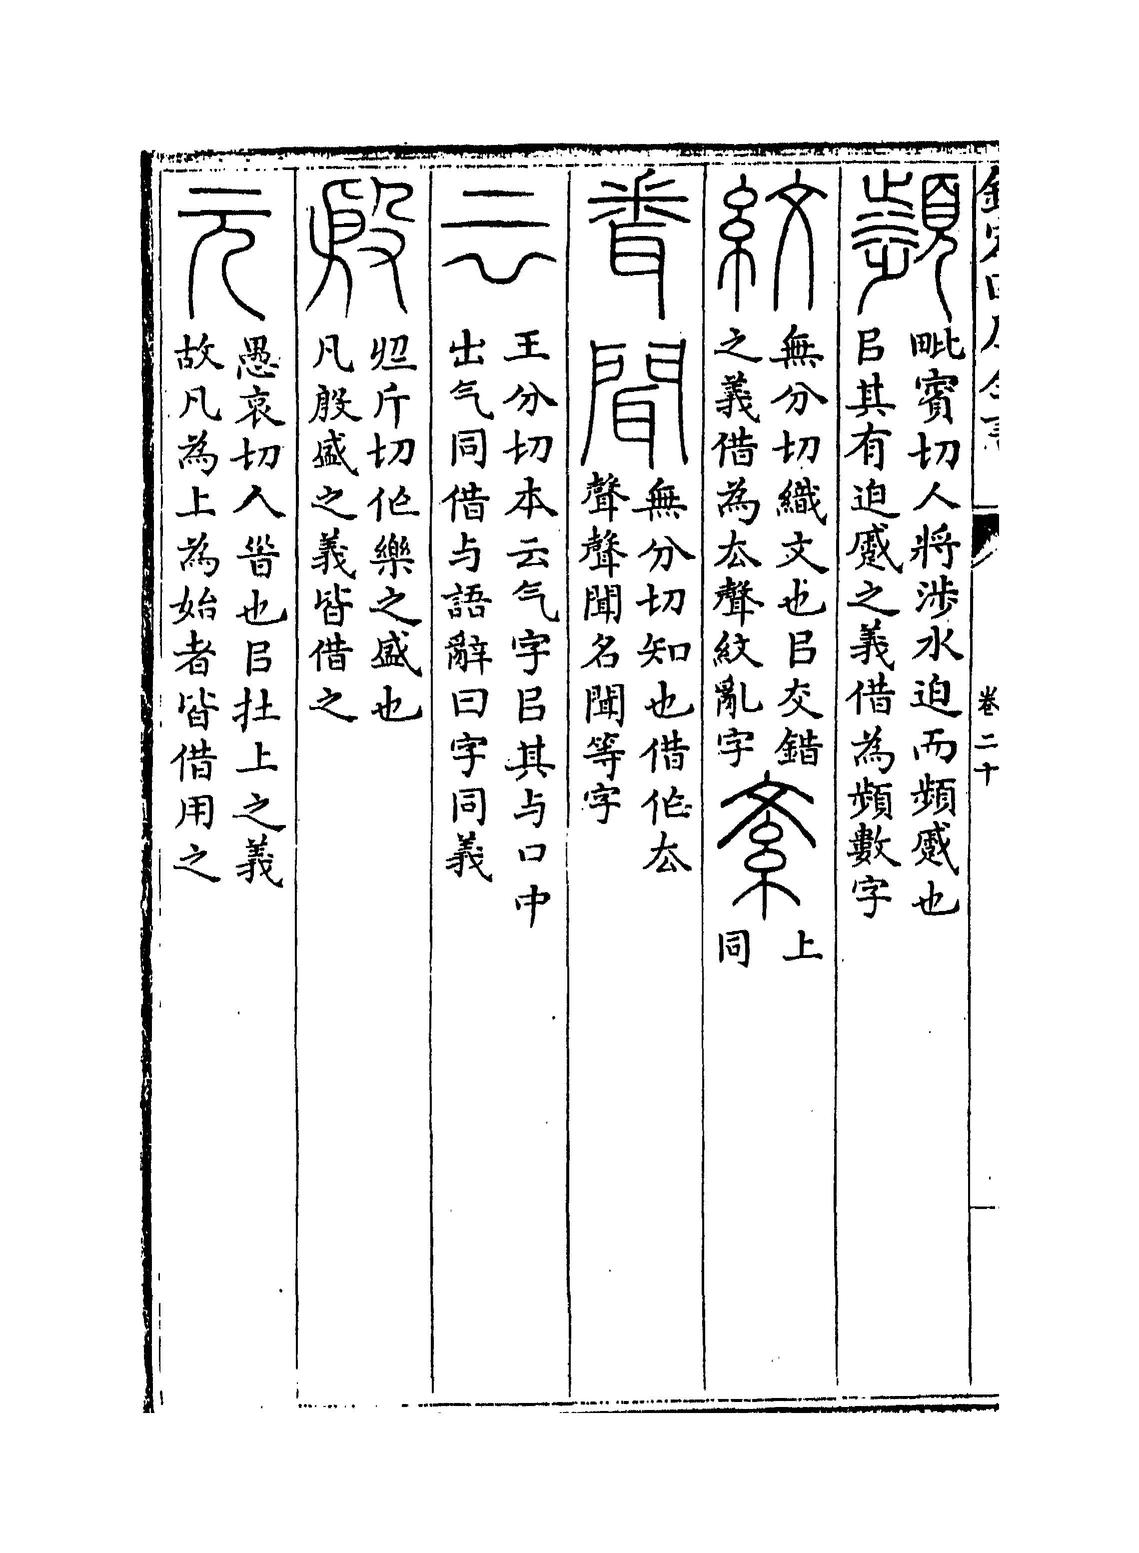 欽定四庫全書
卷二十
頻
毗賓切人將涉水迫而頻蹙也
㠯其有迫蹙之義借為頻數字
紋
無分切織文也㠯交錯
之義借為厺聲紋亂字
紊
上
同
聞
無分切知也借作厺
聲聲聞名聞等字
云
王分切本云气字㠯其与口中
出气同借与語辭曰字同義
殷
斤切作樂之盛也
凡殷盛之義皆借之
元
愚袁切人也㠯在上之義
故凡為上為始者皆借用之